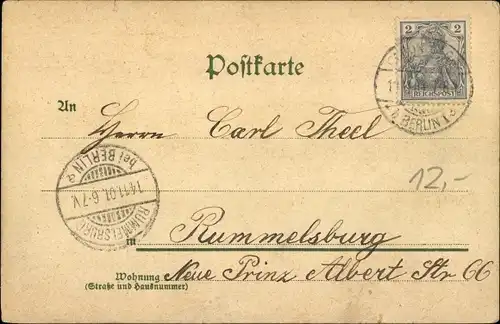 2 2
REICHSPOST
BERLIN
Postkarte
An
Herrn Carl Theel
RUMMELSBURG
bei BERLIN a
14.11.01.6-7V.
12,-
in Rummelsburg
Wohnung Neue Prinz Albert Str 66
(Straße und Hausnummer)